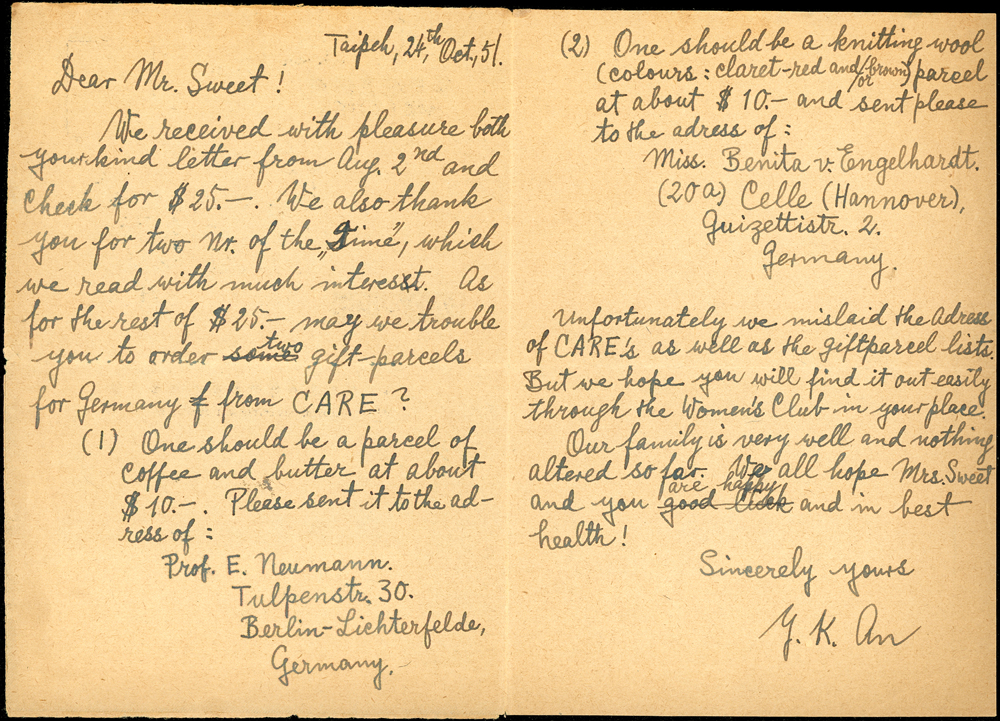 Taipeh, 24,th Oct., 51.
Dear Mr. Sweet!
We received with pleasure both
your kind letter from Aug. 2nd and
Check for $25.-. We also thank
you for two Nr. of the „Time“, which
we read with much interesst. As
for the rest of $25.- may we trouble
you to order some two gift-parcels
for Germany f from CARE?
(1) One should be a parcel of
coffee and butter at about
$10.-. Please sent it to the ad-
ress of:
Prof. E. Neumann.
Tulpenstr. 30.
Berlin-Lichterfelde,
Germany.
(2) One should be a knitting wool
(colours: claret-red and/or brown) parcel
at about $10.- and sent please
to the adress of:
Miss. Benita v. Engelhardt.
(20a) Celle (Hannover),
Guizettistr. 2.
Germany.
Unfortunately we mislaid the Adress
of CARE's as well as the giftparcel lists.
But we hope you will find it out easily
through the Women's Club in your place.
Our family is very well and nothing
altered so far. We all hope Mrs. Sweet
and you good luck are happy and in best
health!
Sincerely yours
Y. K. An